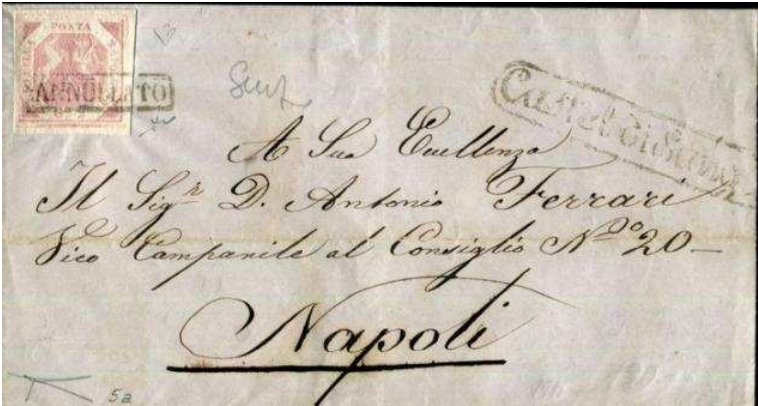 POSTA
ANNULLATO
13
Castel di Sangro
A Sua Eccellenza
Il Sigr. D. Antonio Ferrari
Vico Campanile al Consiglio No 20 –
Napoli
5a